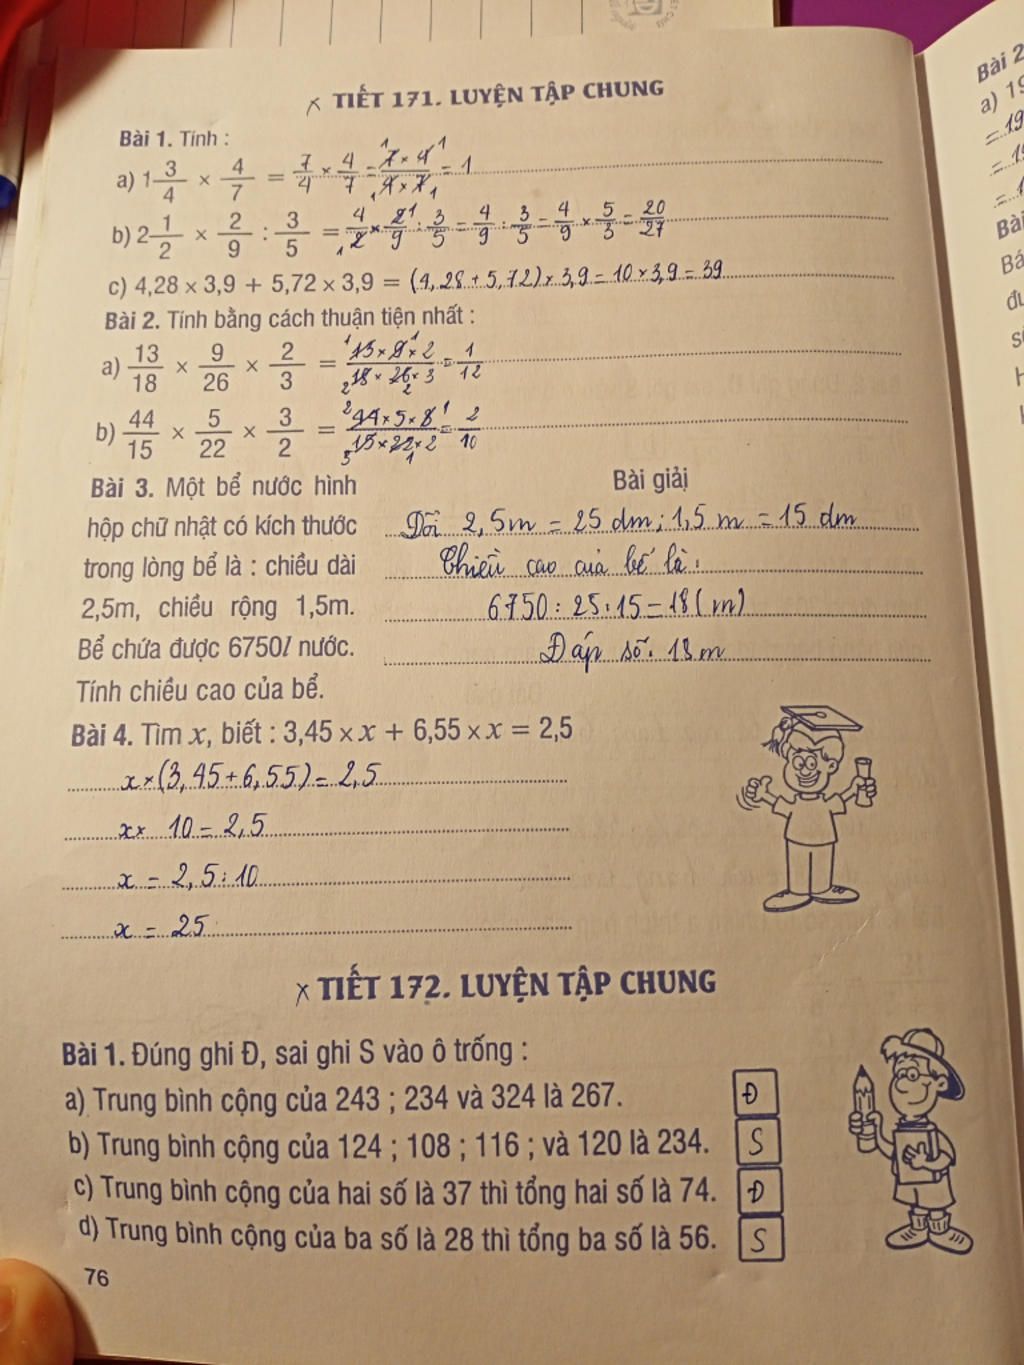 TIẾT 171. LUYỆN TẬP CHUNG
Bài 1. Tính :
a) 1 3/4 × 4/7 = 7/4 × 4/7 = 7 × 4 / 4 × 7 = 1
b) 2 1/2 × 2/9 : 3/5 = 4/2 × 2/9 : 3/5 = 4/9 : 3/5 = 4/9 × 5/3 = 20/27
c) 4,28 × 3,9 + 5,72 × 3,9 = (4,28 + 5,72) × 3,9 = 10 × 3,9 = 39
Bài 2. Tính bằng cách thuận tiện nhất :
a) 13/18 × 9/26 × 2/3 = 13 × 9 × 2 / 18 × 26 × 3 = 1/12
b) 44/15 × 5/22 × 3/2 = 44 × 5 × 8 / 15 × 22 × 2 = 2/10
Bài 3. Một bể nước hình
hộp chữ nhật có kích thước
trong lòng bể là : chiều dài
2,5m, chiều rộng 1,5m.
Bể chứa được 6750l nước.
Tính chiều cao của bể.
Bài giải
Đổi 2,5m = 25 dm ; 1,5 m = 15 dm
Chiều cao của bể là :
6750 : 25 : 15 = 18 (m)
Đáp số : 18 m
Bài 4. Tìm x, biết : 3,45 × x + 6,55 × x = 2,5
x × (3,45 + 6,55) = 2,5
x × 10 = 2,5
x = 2,5 : 10
x = 25
TIẾT 172. LUYỆN TẬP CHUNG
Bài 1. Đúng ghi Đ, sai ghi S vào ô trống :
a) Trung bình cộng của 243 ; 234 và 324 là 267. Đ
b) Trung bình cộng của 124 ; 108 ; 116 ; và 120 là 234. S
c) Trung bình cộng của hai số là 37 thì tổng hai số là 74. Đ
d) Trung bình cộng của ba số là 28 thì tổng ba số là 56. S
76
Bài 2
a) 19
= 19